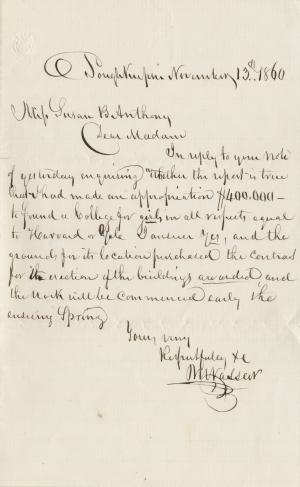 Poughkeepsie November 13th 1860
Miss Susan B Anthony
Dear Madam
In reply to your note
of yesterday enquiring whether the report is true
that I had made an appropriation $400.000—
to found a College for girls in all respects equal
to Harvard or Yale I answer Yes, and the
grounds for its location purchased the contract
for the erection of the buildings awarded, and
the work will be commenced early the
ensuing Spring
Yours very
Respectfully &c
M Vassar